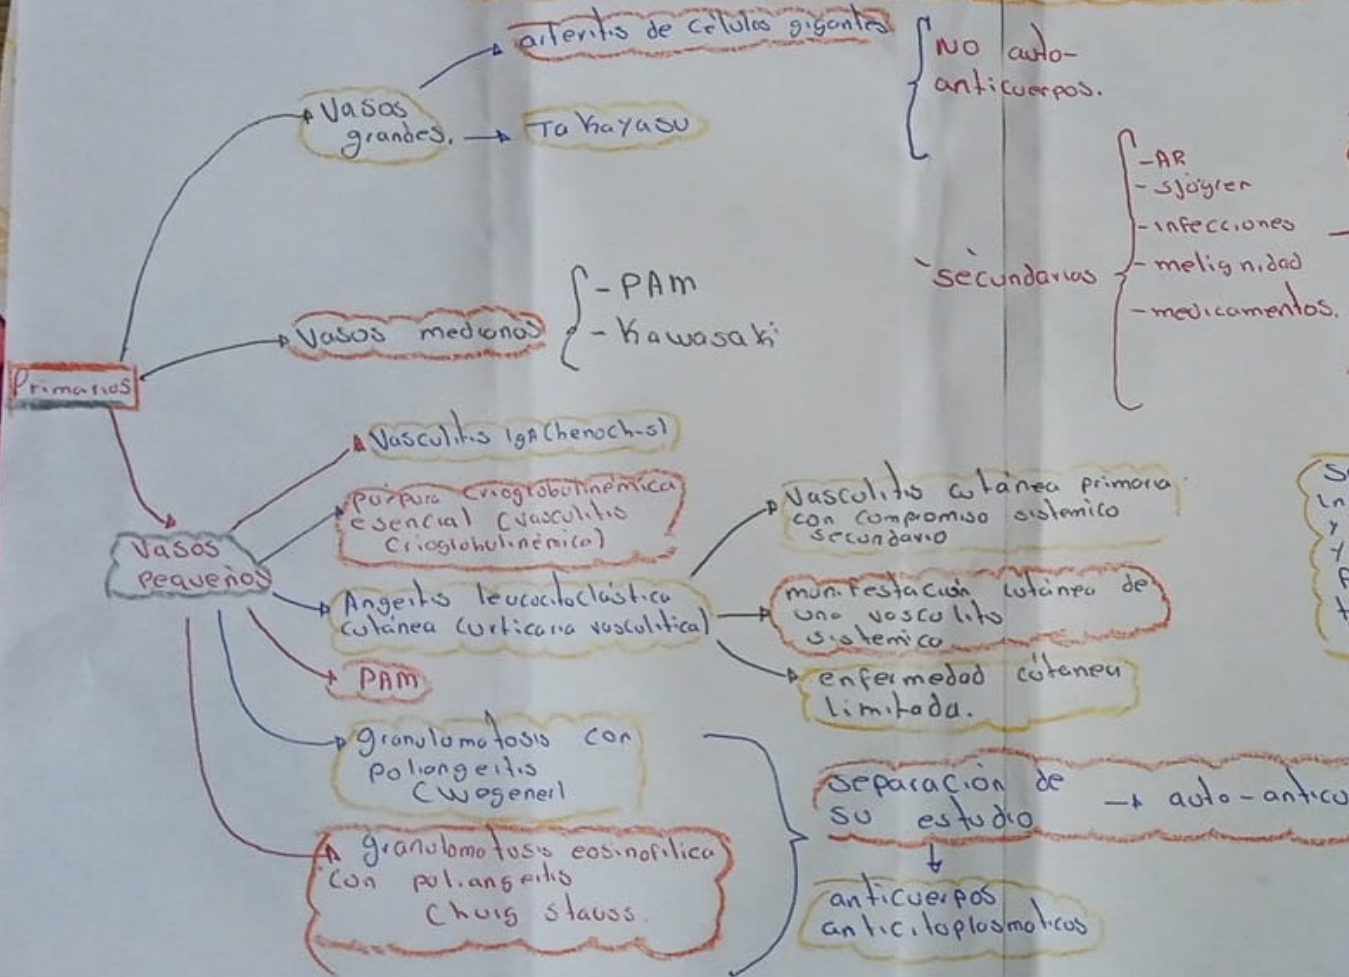 arteritis de células gigantes
NO auto-
anticuerpos.
Vasos
grandes.
Takayasu
-AR
- sjögren
- infecciones
- melignidad
- medicamentos.
secundarias
Vasos medianos
- PAM
- Kawasaki
Primarios
Vasculitis IgA (henoch-sl)
purpura crioglobulinémica
esencial (vasculitis
crioglobulinémica)
Vasos
pequeños
Angeitis leucocitoclástica
cutánea (urticaria vasculitica)
PAM
granulomatosis con
poliangeitis
(Wegener)
granulomatosis eosinofilica
con poliangeitis
Churg Stauss.
Vasculitis cutánea primaria
con compromiso sistemico
secundario
manifestación cutánea de
una vasculitis
sistemica
enfermedad cútanea
limitada.
separación de
su estudio
→ auto-anticu
anticuerpos
anticitoplasmaticos